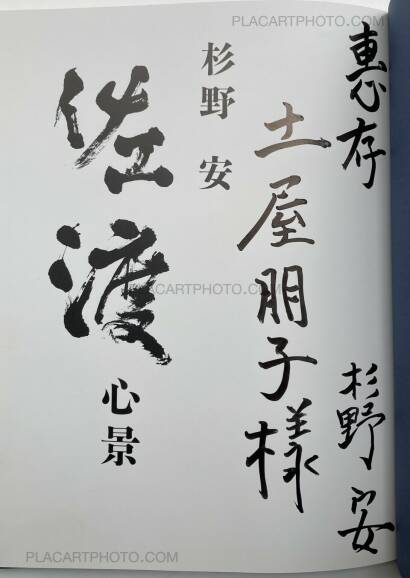 PLACARTPHOTO.COM
惠存
杉野 安
土屋朋子様
杉野 安
佐渡
心景
PLACARTPHOTO.COM
PLACARTPHOTO.COM